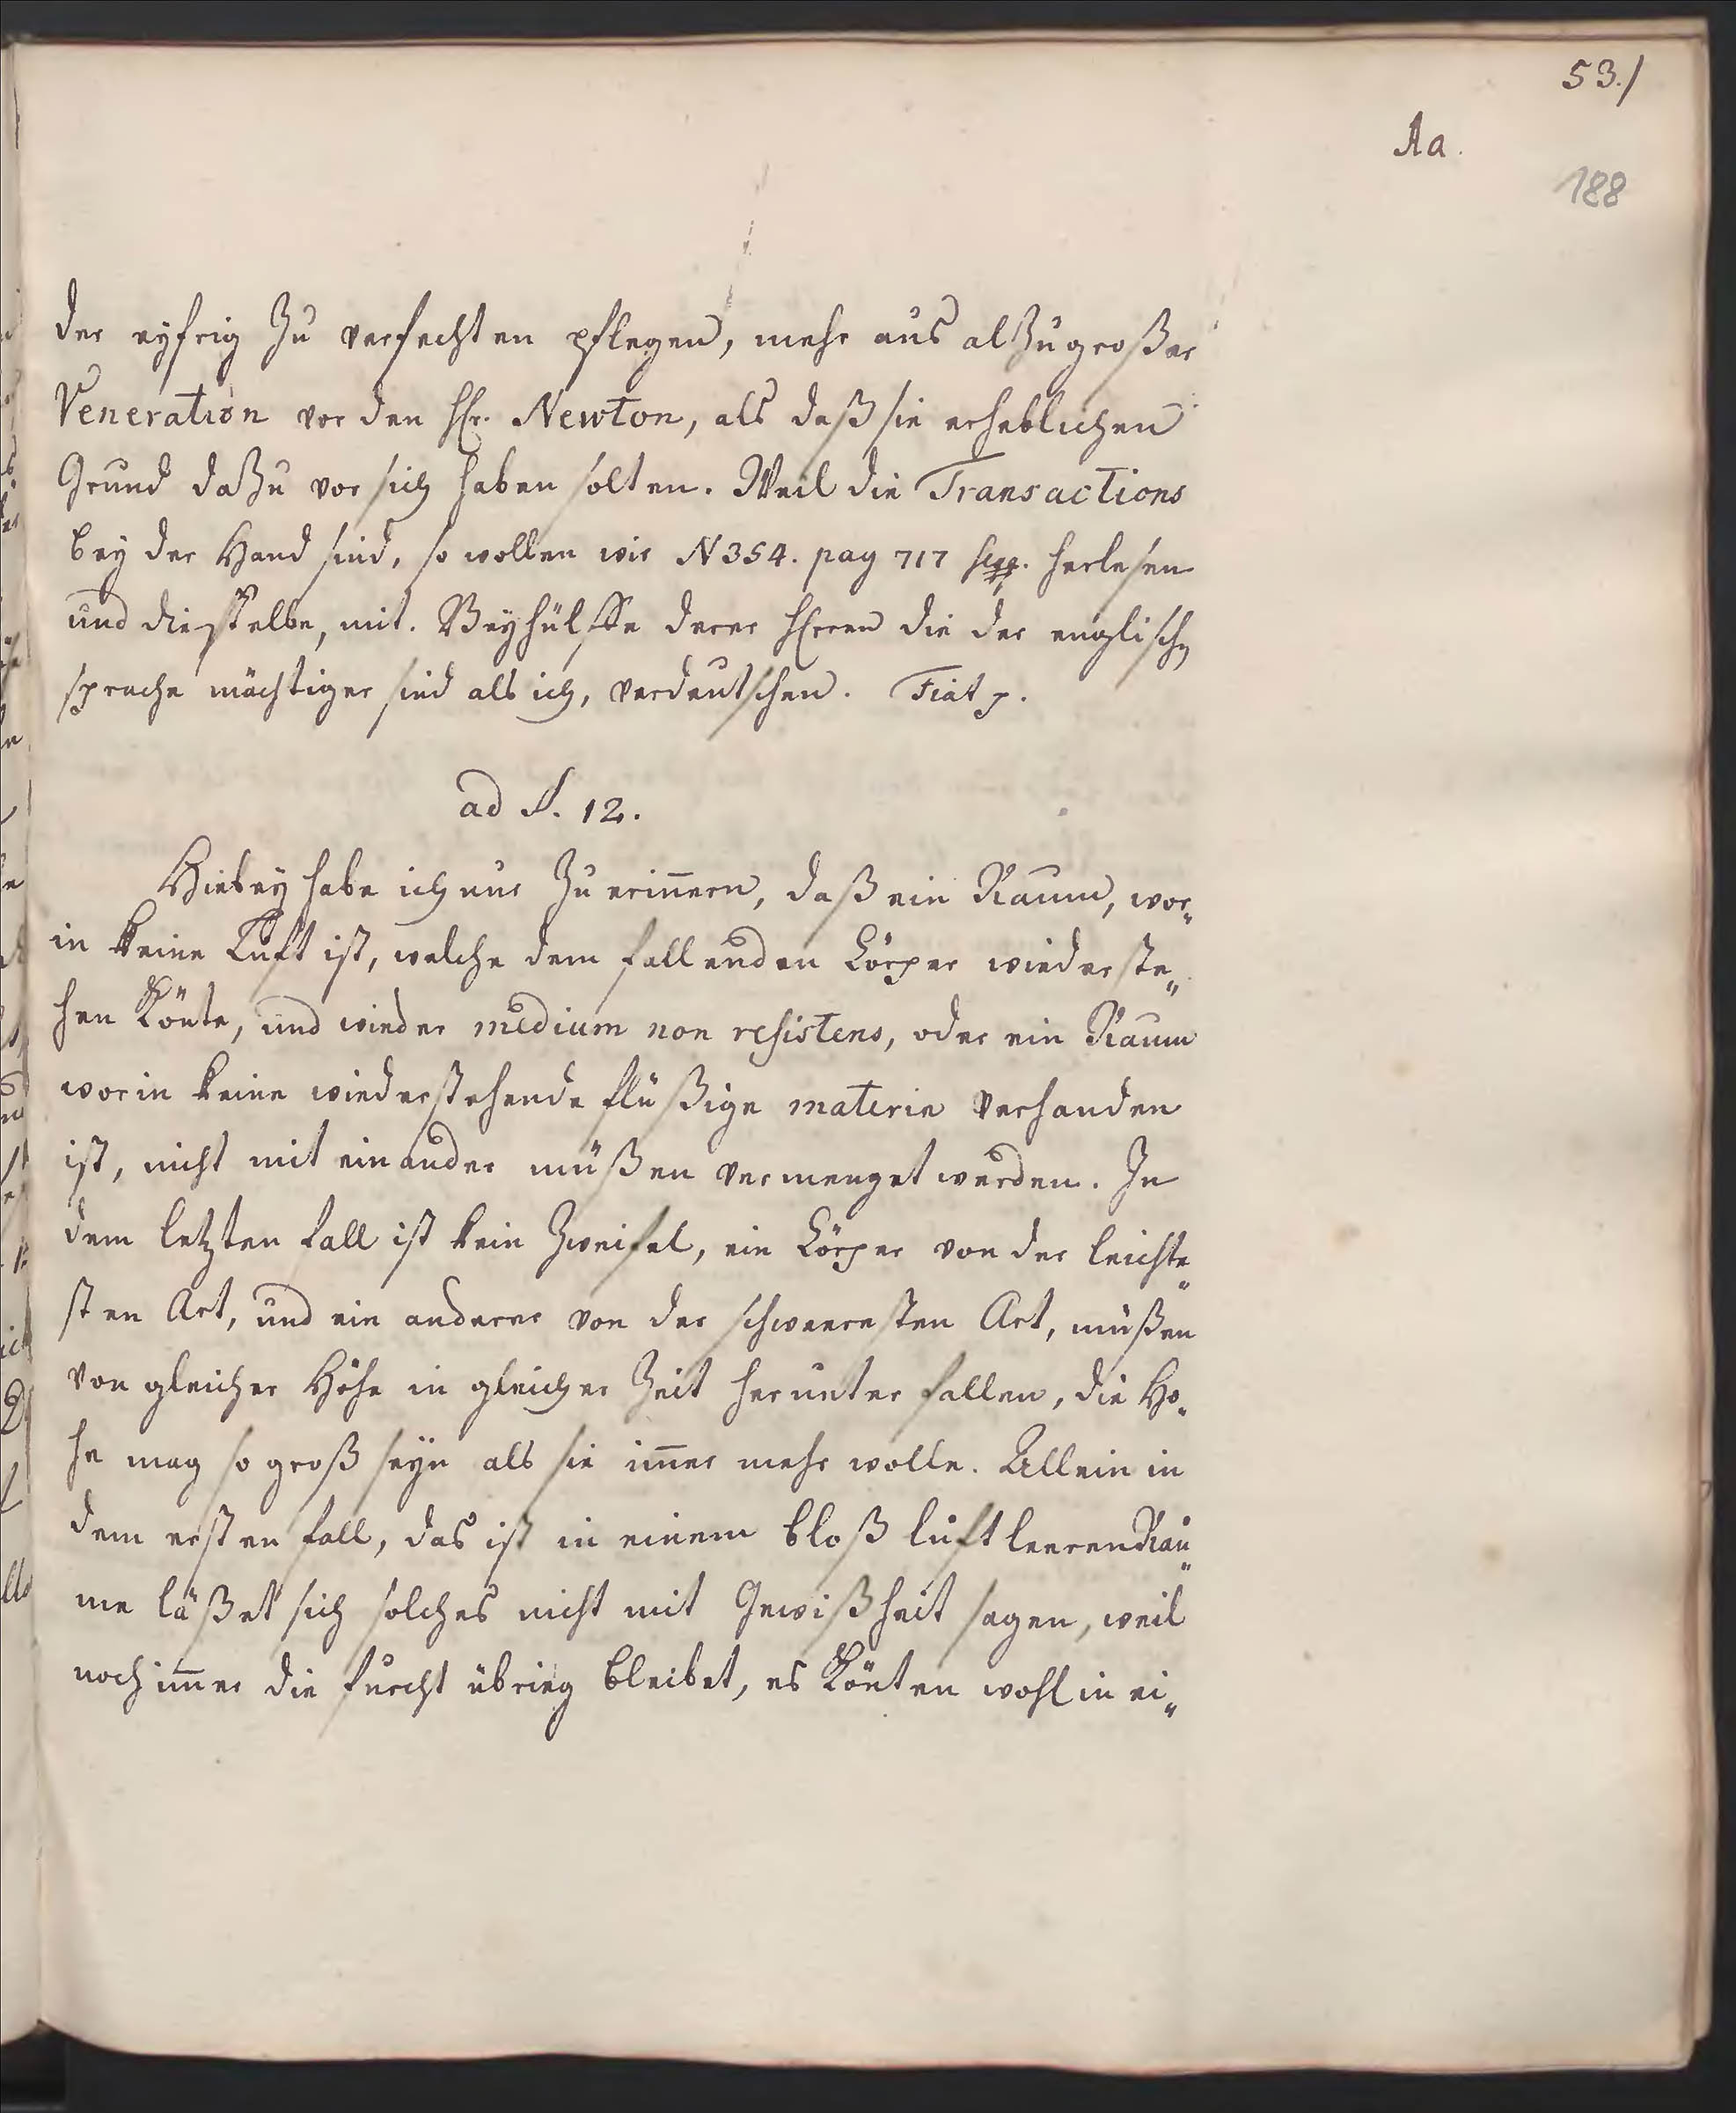 53./
Aa.
188
der eyfrig zu verfechten pflegen, mehr aus alzugroßer
Veneration vor den Hr. Newton, als daß sie erheblichen
Grund dazu vor sich haben solten. Weil die Transactions
bey der Hand sind, so wollen wir N 354. pag 717 seqq. herlesen
und dieselbe, mit. Beyhülffe derer Herren die der englischen
sprache mächtiger sind als ich, verdeutschen. Fiat p.
ad §. 12.
Hiebey habe ich nur zu erin̄ern, daß ein Raum, wor„
in keine Luft ist, welche dem fallenden Cörper wiederste„
hen könte, und wieder medium non resistens, oder ein Raum
worin keine wiederstehende flüßige materie verhanden
ist, nicht mit einander müßen vermenget werden. In
dem letzten fall ist kein Zweifel, ein Cörper von der leichte„
sten Art, und ein anderer von der schweresten Art, müßen
von gleicher Höhe in gleicher Zeit herunter fallen, die Hö„
he mag so groß seyn als sie im̄er mehr wolle. Allein in
dem ersten fall, das ist in einem bloß luft leeren Rau„
me läßet sich solches nicht mit Gewißheit sagen, weil
noch im̄er die furcht übrig bleibet, es könten wohl in ei„